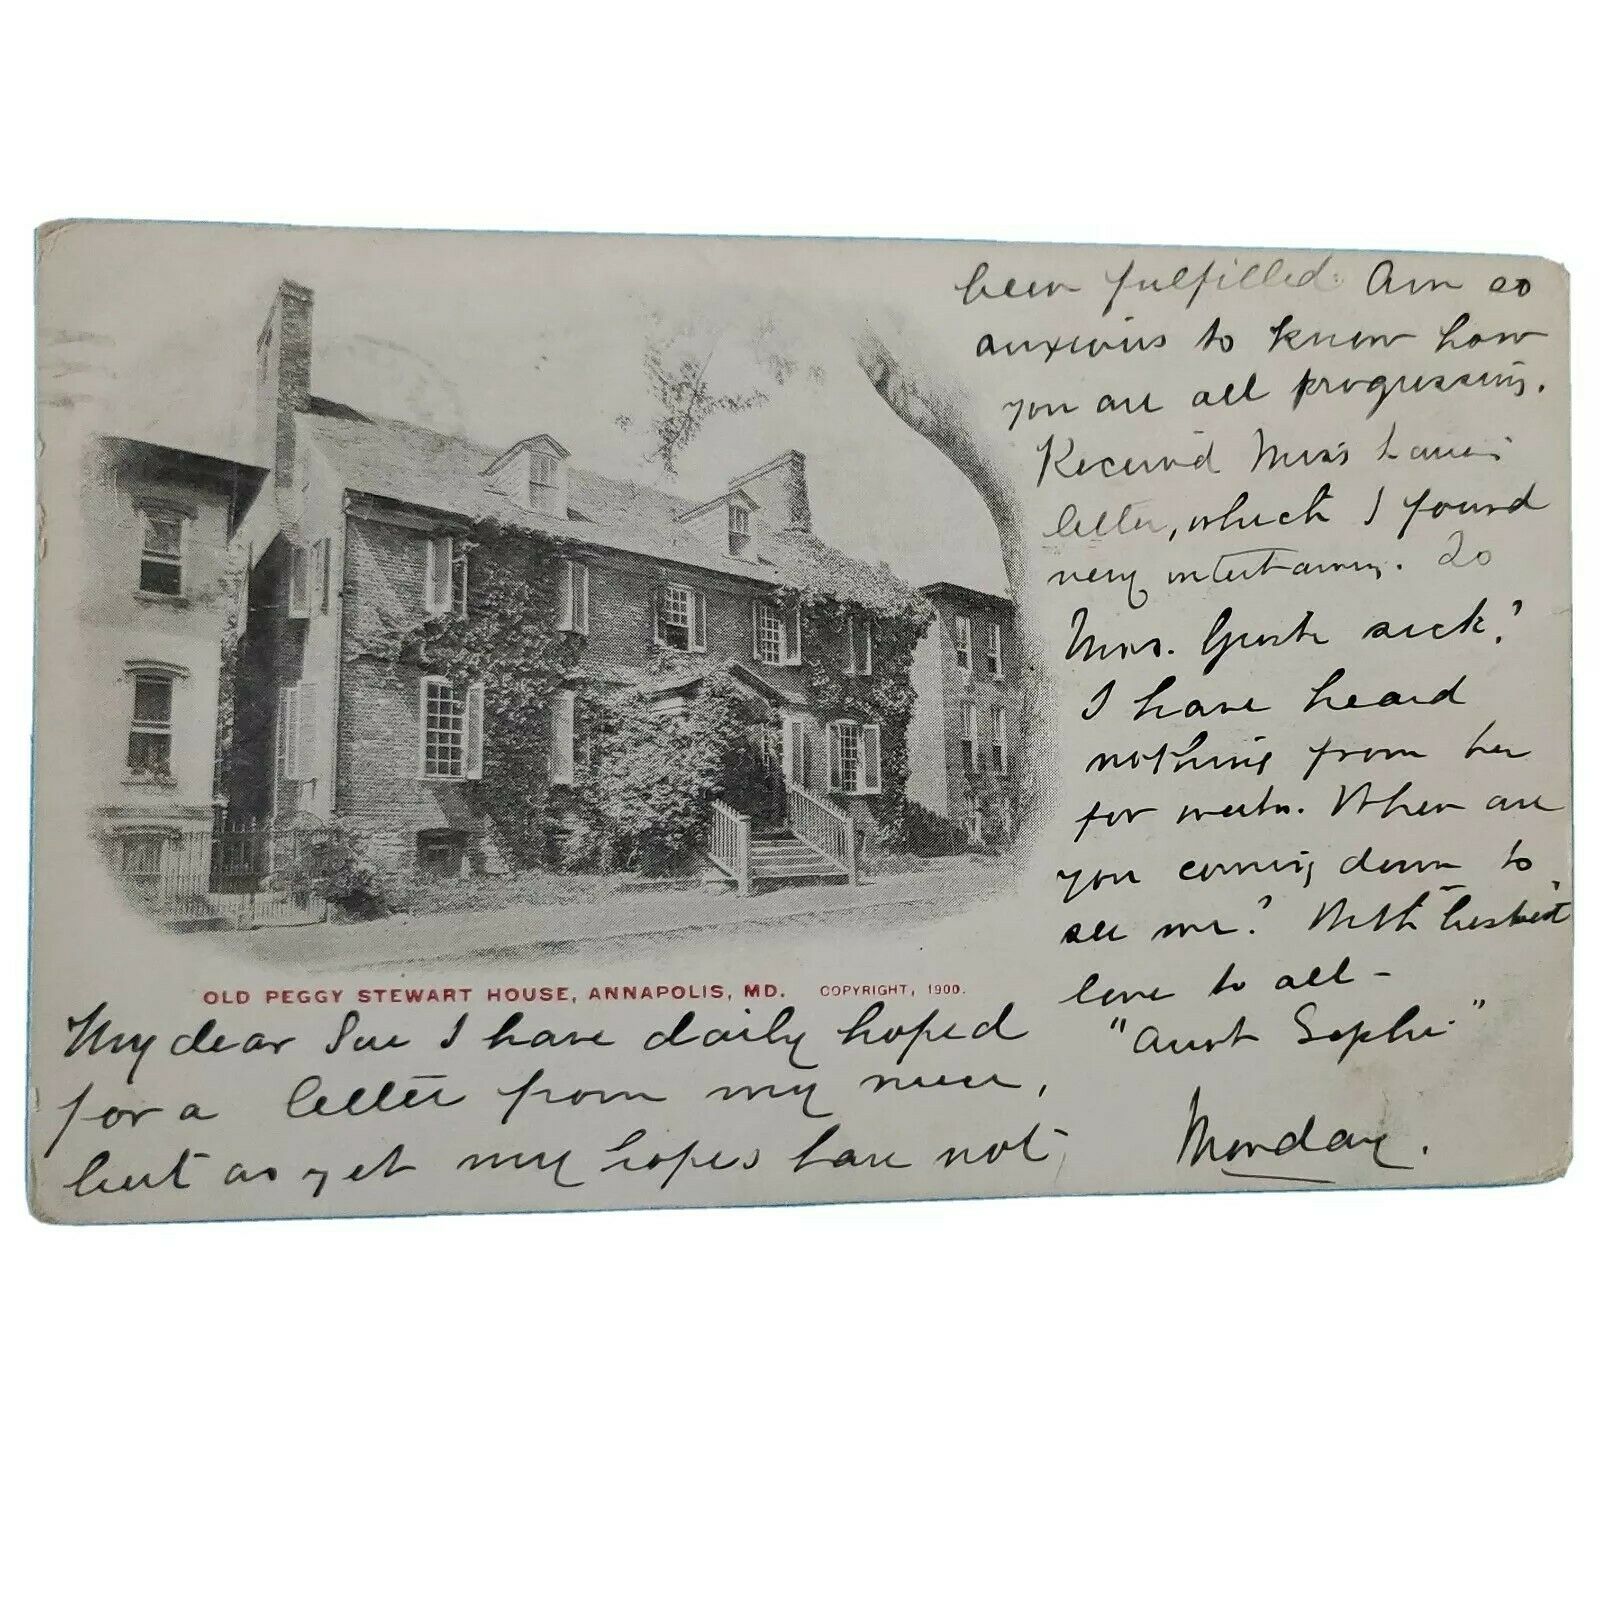 OLD PEGGY STEWART HOUSE, ANNAPOLIS, MD. COPYRIGHT, 1900.
My dear Sue I have daily hoped
for a letter from my niece,
but as yet my hopes have not
been fulfilled. Am so
anxious to know how
you are all progressing.
Received Miss
letter, which I found
very entertaining. Is
Mrs. sick?
I have heard
nothing from her
for weeks. When are
you coming down to
see me? With best
love to all -
"Aunt Sophie"
Monday.